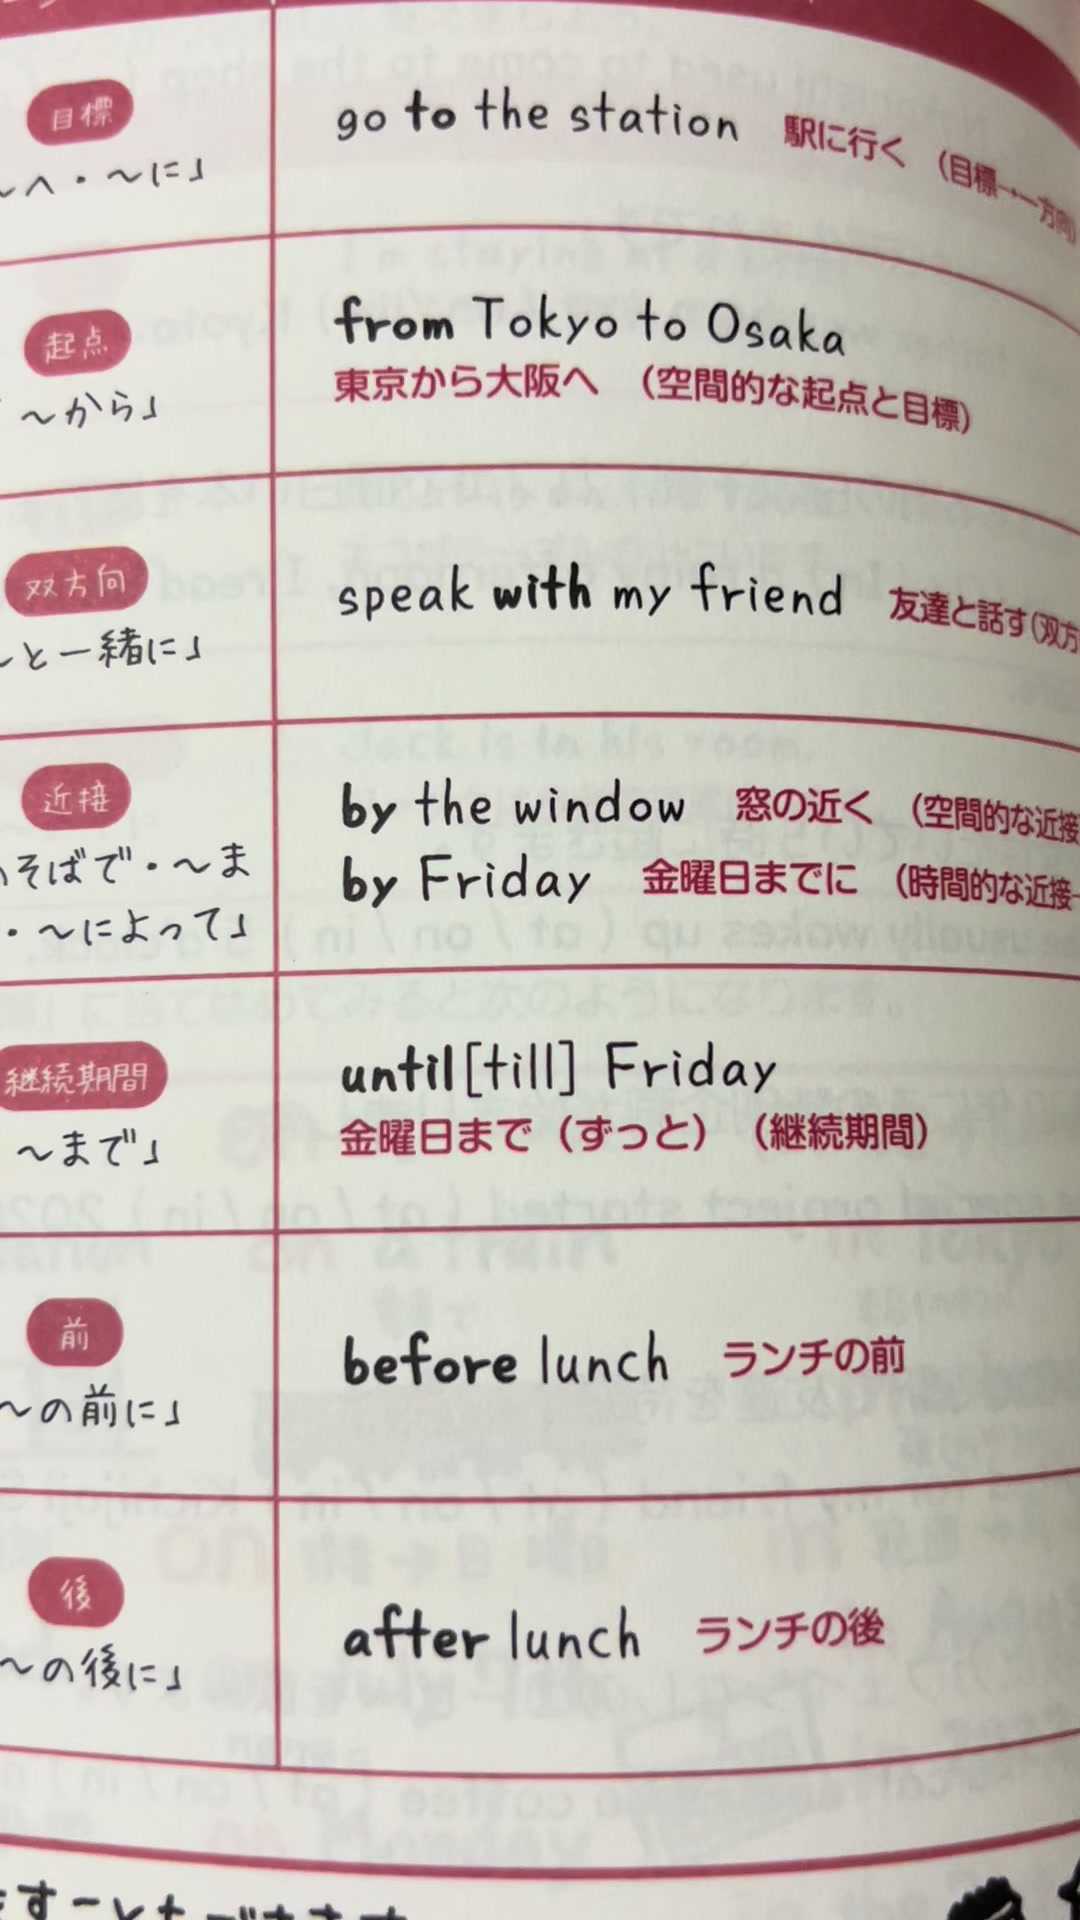 目標
～へ・～に」
go to the station 駅に行く (目標→一方向)
起点
～から」
from Tokyo to Osaka
東京から大阪へ (空間的な起点と目標)
双方向
～と一緒に」
speak with my friend 友達と話す(双方
近接
そばで・～ま
・～によって」
by the window 窓の近く (空間的な近接
by Friday 金曜日までに (時間的な近接
継続期間
～まで」
until[till] Friday
金曜日まで (ずっと) (継続期間)
前
～の前に」
before lunch ランチの前
後
～の後に」
after lunch ランチの後